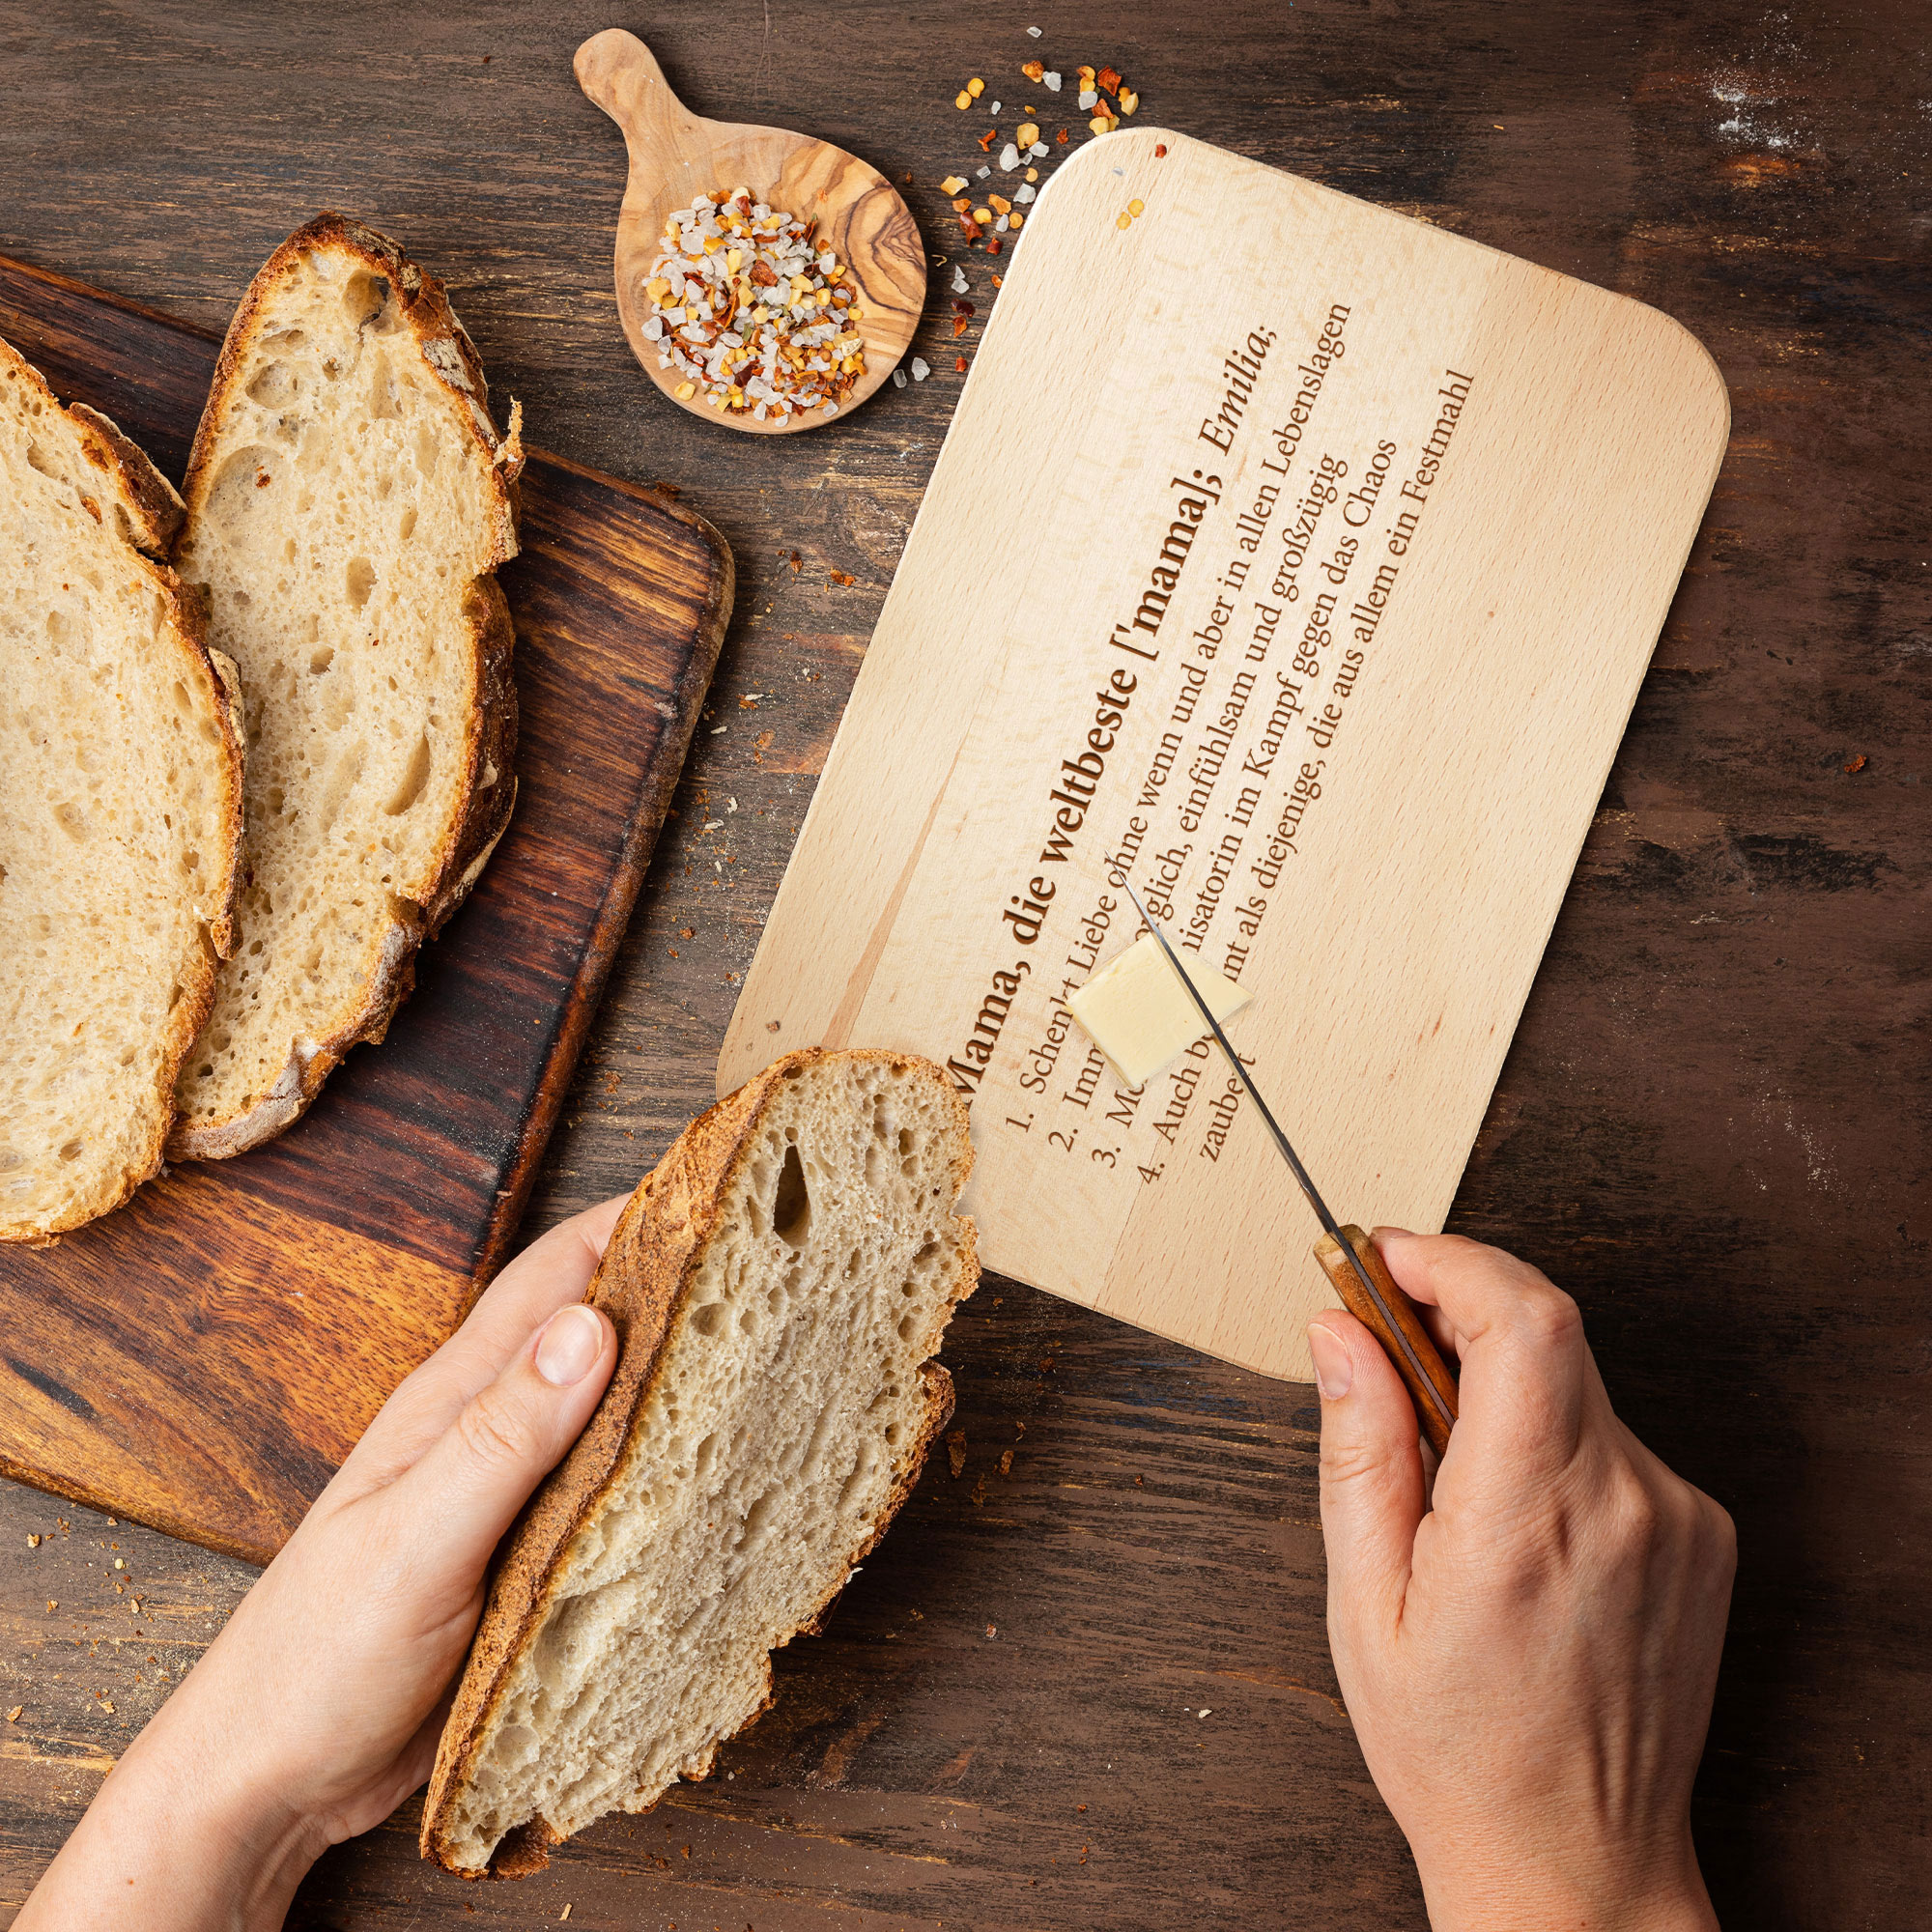 Mama, die weltbeste ['mama]; Emilia;
1. Schenkt Liebe ohne wenn und aber in allen Lebenslagen
2. einfühlsam und großzügig
3. im Kampf gegen das Chaos
4. Auch als diejenige, die aus allem ein Festmahl
zaubert